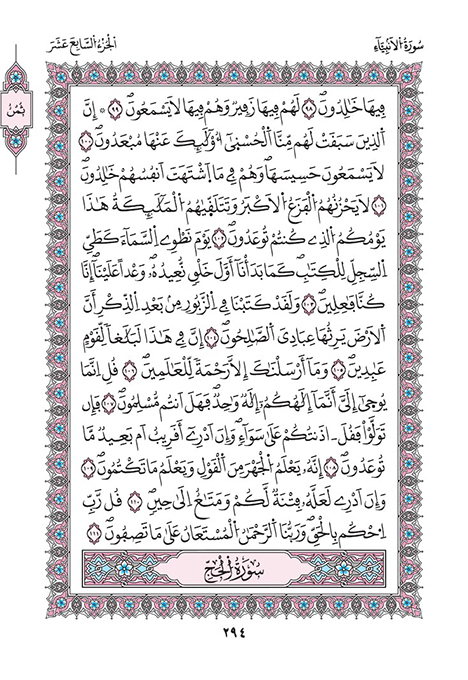 سُورَةُ الْأَنبِيَاءِ
اَلْجُزْءُ السَّابِعَ عَشَرَ
ثُمُنُ
فِيهَا خَٰلِدُونَۖ ٩٨ لَهُمْ فِيهَا زَفِيرٞ وَهُمْ فِيهَا لَا يَسْمَعُونَۖ ٩٩ ۞ إِنَّ
اَ۬لذِينَ سَبَقَتْ لَهُم مِّنَّا اَ۬لْحُسْن۪ىٰٓ أُوْلَٰٓئِكَ عَنْهَا مُبْعَدُونَ ١٠٠
لَا يَسْمَعُونَ حَسِيسَهَاۖ وَهُمْ فِے مَا اَ۪شْتَهَتَ اَنفُسُهُمْ خَٰلِدُونَۖ
١٠١ لَا يَحْزُنُهُمُ اُ۬لْفَزَعُ اُ۬لَاكْبَرُ وَتَتَلَقّ۪يٰهُمُ اُ۬لْمَلَٰٓئِكَةُ هَٰذَا
يَوْمُكُمُ اُ۬لذِے كُنتُمْ تُوعَدُونَۖ ١٠٢ يَوْمَ نَطْوِے اِ۬لسَّمَآءَ كَطَيِّ
اِ۬لسِّجِلِّ لِلْكِتَٰبِۖ كَمَا بَدَأْنَآ أَوَّلَ خَلْقٖ نُّعِيدُهُۥۖ وَعْداً عَلَيْنَآۖ إِنَّا
كُنَّا فَٰعِلِينَۖ ١٠٣ وَلَقَدْ كَتَبْنَا فِے اِ۬لزَّبُورِ مِنۢ بَعْدِ اِ۬لذِّكْرِ أَنَّ
اَ۬لَارْضَ يَرِثُهَا عِبَادِيَ اَ۬لصَّٰلِحُونَۖ ١٠٤ إِنَّ فِے هَٰذَا لَبَلَٰغاٗ لِّقَوْمٍ
عَٰبِدِينَۖ ١٠٥ وَمَآ أَرْسَلْنَٰكَ إِلَّا رَحْمَةٗ لِّلْعَٰلَمِينَۖ ١٠٦ قُلِ اِنَّمَا
يُوح۪ىٰٓ إِلَيَّ أَنَّمَآ إِلَٰهُكُمُۥٓ إِلَٰهٞ وَٰحِدٞۖ فَهَلَ اَنتُم مُّسْلِمُونَۖ ١٠٧ فَإِن
تَوَلَّوْاْ فَقُلَ اٰذَنتُكُمْ عَلَىٰ سَوَآءٖۖ وَإِنَ اَدْرِےٓ أَقَرِيبٌ اَم بَعِيدٞ مَّا
تُوعَدُونَۖ ١٠٨ إِنَّهُۥ يَعْلَمُ اُ۬لْجَهْرَ مِنَ اَ۬لْقَوْلِ وَيَعْلَمُ مَا تَكْتُمُونَۖ ١٠٩
وَإِنَ اَدْرِے لَعَلَّهُۥ فِتْنَةٞ لَّكُمْ وَمَتَٰعٌ اِلَىٰ حِينٖۖ ١١٠ قُل رَّبِّ
اِ۟حْكُم بِالْحَقِّۖ وَرَبُّنَا اَ۬لرَّحْمَٰنُ اُ۬لْمُسْتَعَانُ عَلَىٰ مَا تَصِفُونَۖ ١١١
سُورَةُ الْحَجِّ
٢٩٤